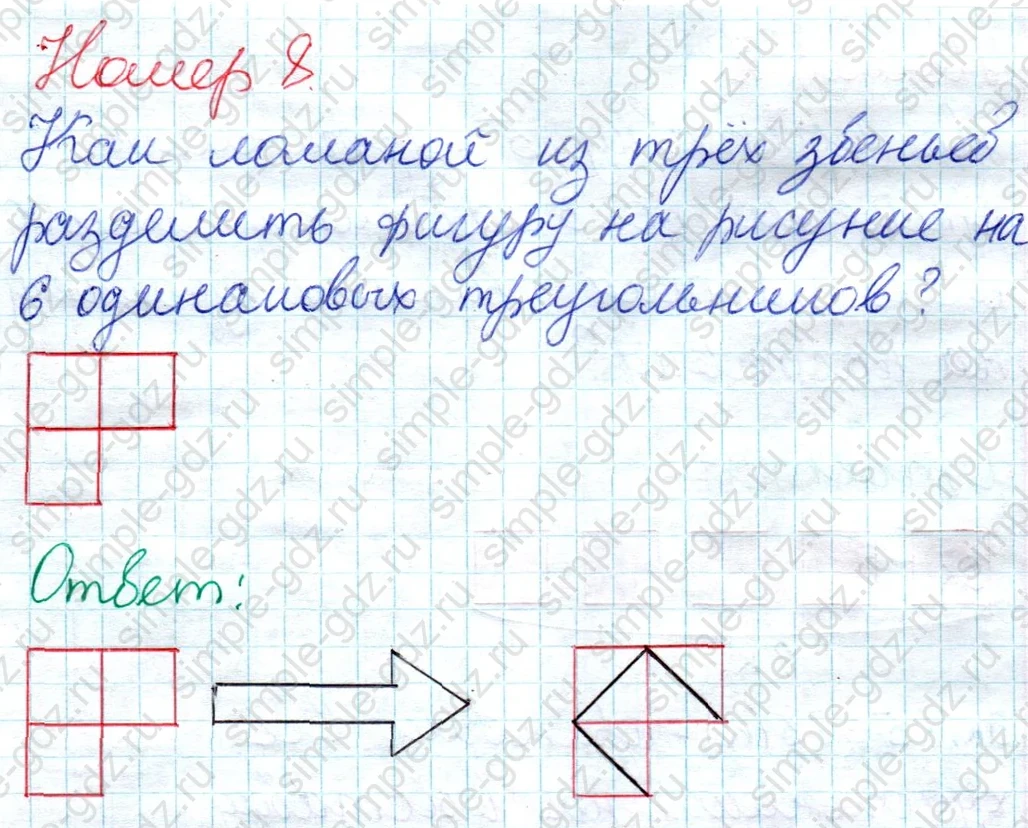 Номер 8.
Как ломаной из трёх звеньев
разделить фигуру на рисунке на
6 одинаковых треугольников?
Ответ:
simple-gdz.ru